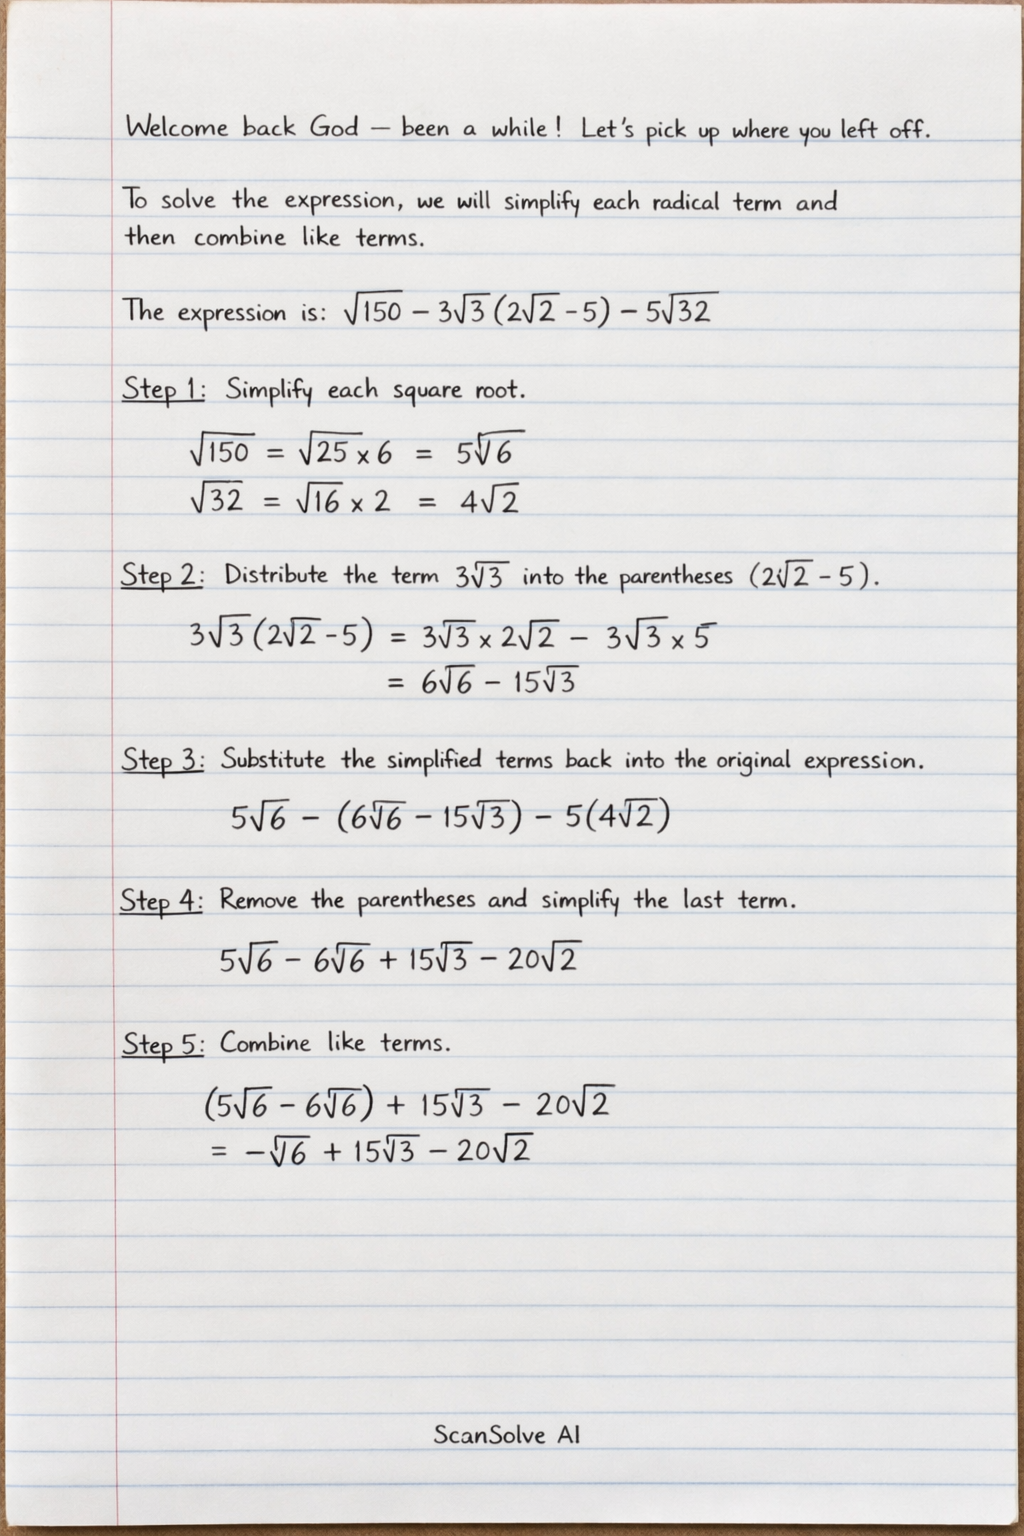 Welcome back God — been a while! Let's pick up where you left off.
To solve the expression, we will simplify each radical term and
then combine like terms.
The expression is: √150 − 3√3 (2√2 - 5) − 5√32
Step 1: Simplify each square root.
√150 = √25 x 6 = 5√6
√32 = √16 x 2 = 4√2
Step 2: Distribute the term 3√3 into the parentheses (2√2 - 5).
3√3 (2√2 - 5) = 3√3 x 2√2 − 3√3 x 5
= 6√6 − 15√3
Step 3: Substitute the simplified terms back into the original expression.
5√6 − (6√6 − 15√3) − 5(4√2)
Step 4: Remove the parentheses and simplify the last term.
5√6 − 6√6 + 15√3 − 20√2
Step 5: Combine like terms.
(5√6 − 6√6) + 15√3 − 20√2
= −√6 + 15√3 − 20√2
ScanSolve AI